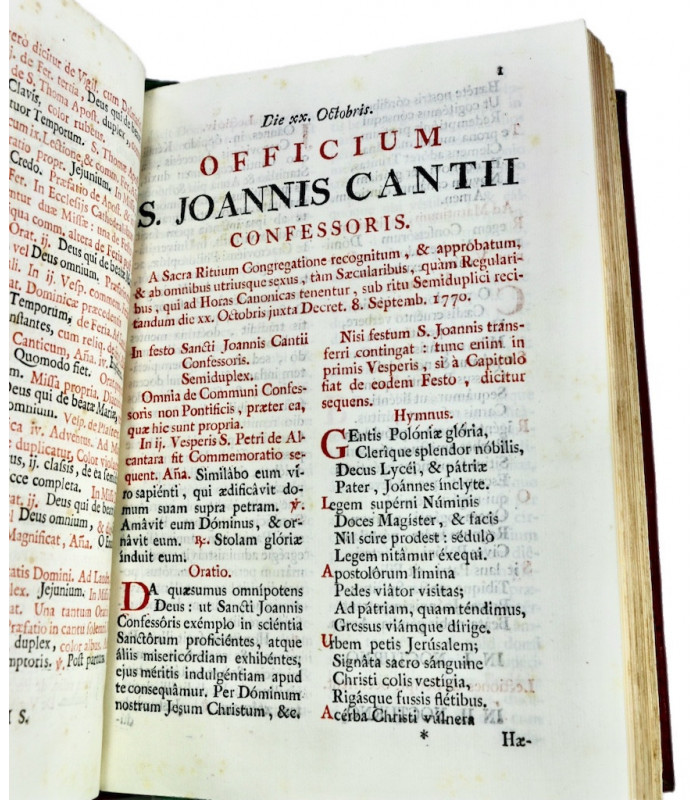 vero dicitur de Vigil. cum
ij. de Fer. tertia, Deus qui de
de S. Thoma Apost. duplex,
Clavis, color rubeus.
tuor Temporum. S. Thomæ
um ix. Lectione & comm. Fer.
ratio propr. Jejunium. In
Credo. Præfatio de Apost. &
Fer. In Ecclesiis Cathedral
tur duæ Missæ: una de Fest
qua comm. altera de Feria
Orat. ij. Deus qui de beá
vel Deus omnium. Præfatio
t. In ij. Vesp. commem.
c. Dominicæ præcedentis
Temporum, de Feria.
nstantes, cum reliq. de
Canticum, Aña. iv.
Quomodo fiet. Oratio
m. Missa propria.
Deus qui de beátæ Mariæ,
omnium. Vesp. de
a iv. Adventus. Ad
duplicatur, Color
us, ij. classis, de ea
cce completa. In Missa
t, ij. Deus qui de beátæ
l Deus omnium, &
Magnificat, Aña. O
atis Domini. Ad Laudes
lex. Jejunium. In Missa
t. Una tantum Oratio
Præfatio in cantu solemni
duplex, color albus.
mptoris. ℣. Post partum
I S.
1
Die xx. Octobris.
OFFICIUM
S. JOANNIS CANTII
CONFESSORIS.
A Sacra Rituum Congregatione recognitum, & approbatum,
& ab omnibus utriusque sexus, tàm Sæcularibus, quàm Regulari-
bus, qui ad Horas Canonicas tenentur, sub ritu Semiduplici reci-
tandum die xx. Octobris juxta Decret. 8. Septemb. 1770.
In festo Sancti Joannis Cantii
Confessoris.
Semiduplex.
Omnia de Communi Confes-
soris non Pontificis, præter ea,
quæ hic sunt propria.
In ij. Vesperis S. Petri de Al-
cantara fit Commemoratio se-
quent. Aña. Similábo eum vi-
ro sapiénti, qui ædificávit do-
mum suam supra petram. ℣.
Amávit eum Dóminus, & or-
návit eum. ℟. Stolam glóriæ
índuit eum.
Oratio.
DA quæsumus omnípotens
Deus: ut Sancti Joannis
Confessôris exémplo in sciéntia
Sanctórum proficiéntes, atque
áliis misericórdiam exhibéntes,
ejus méritis indulgéntiam apud
te consequámur. Per Dóminum
nostrum Jesum Christum, &c.
Nisi festum S. Joannis trans-
ferri contingat: tunc enim in
primis Vesperis, si à Capitulo
fiat de eodem Festo, dicitur
sequens.
Hymnus.
GEntis Polóniæ glória,
Clerique splendor nóbilis,
Decus Lycéi, & pátriæ
Pater, Joánnes ínclyte.
Legem supérni Núminis
Doces Magister, & facis
Nil scire prodest: sédulo
Legem nitámur éxequi.
Apostolôrum límina
Pedes viàtor vísitas;
Ad pátriam, quam téndimus,
Gressus viámque dírige.
Urbem petis Jerúsalem;
Signáta sacro sánguine
Christi colis vestígia,
Rigásque fusis flétibus.
Acérba Christi vúlnera
*
Hæ-